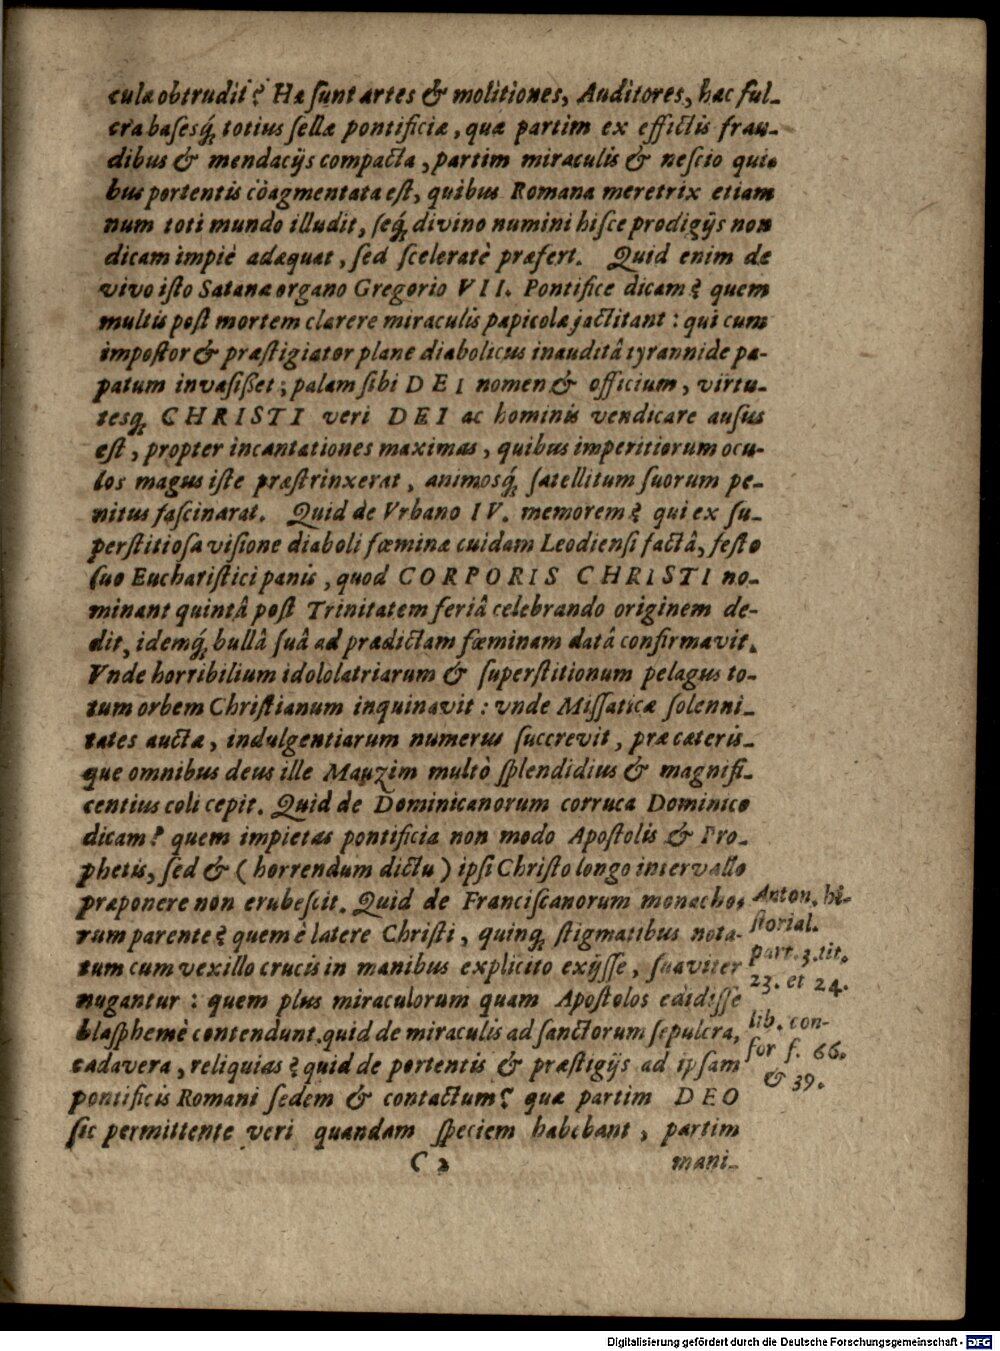 culæ obtrudit? Hæ sunt artes & molitiones, Auditores, hæc ful-
cra basesq́; totius sellæ pontificiæ, quæ partim ex effictis frau-
dibus & mendacijs compacta, partim miraculis & nescio qui-
bus portentis cöagmentata est, quibus Romana meretrix etiam
num toti mundo illudit, seq́; divino numini hisce prodigijs non
dicam impiè adæquat, sed sceleratè præfert. Quid enim de
vivo isto Satanæ organo Gregorio VII. Pontifice dicam? quem
multis post mortem clarere miraculis papicolæ jactitant: qui cum
impostor & præstigiator plane diabolicus inauditâ tyrannide pa-
patum invasisset; palam sibi DEI nomen & officium, virtu-
tesq́; CHRISTI veri DEI ac hominis vendicare ausus
est, propter incantationes maximas, quibus imperitiorum ocu-
los magus iste præstrinxerat, animosq́; satellitum suorum pe-
nitus fascinarat. Quid de Vrbano IV. memorem? qui ex su-
perstitiosa visione diaboli fœminæ cuidam Leodiensi factâ, festo
suo Eucharistici panis, quod CORPORIS CHRISTI no-
minant quintâ post Trinitatem feriâ celebrando originem de-
dit, idemq́; bullâ suâ ad prædictam fœminam datâ confirmavit.
Vnde horribilium idololatriarum & superstitionum pelagus to-
tum orbem Christianum inquinavit: vnde Missaticæ solenni-
tates auctæ, indulgentiarum numerus succrevit, præ cæteris-
que omnibus deus ille Mauzim multò splendidius & magnifi-
centius coli cepit. Quid de Dominicanorum corruca Dominico
dicam? quem impietas pontificia non modo Apostolis & Pro-
phetis, sed & (horrendum dictu) ipsi Christo longo intervallo
præponere non erubescit. Quid de Franciscanorum monacho-
rum parente? quem è latere Christi, quinq; stigmatibus nota-
tum cum vexillo crucis in manibus explicito exijsse, suaviter
nugantur: quem plus miraculorum quam Apostolos edidisse
blasphemè contendunt. quid de miraculis ad sanctorum sepulcra,
cadavera, reliquias? quid de portentis & præstigijs ad ipsam
pontificis Romani sedem & contactum? quæ partim DEO
sic permittente veri quandam speciem habebant, partim
C 2 mani-
Anton. hi-
storial.
part. 3. tit.
23. et 24.
lib. con-
for f. 66.
& 39.
Digitalisierung gefördert durch die Deutsche Forschungsgemeinschaft - DFG